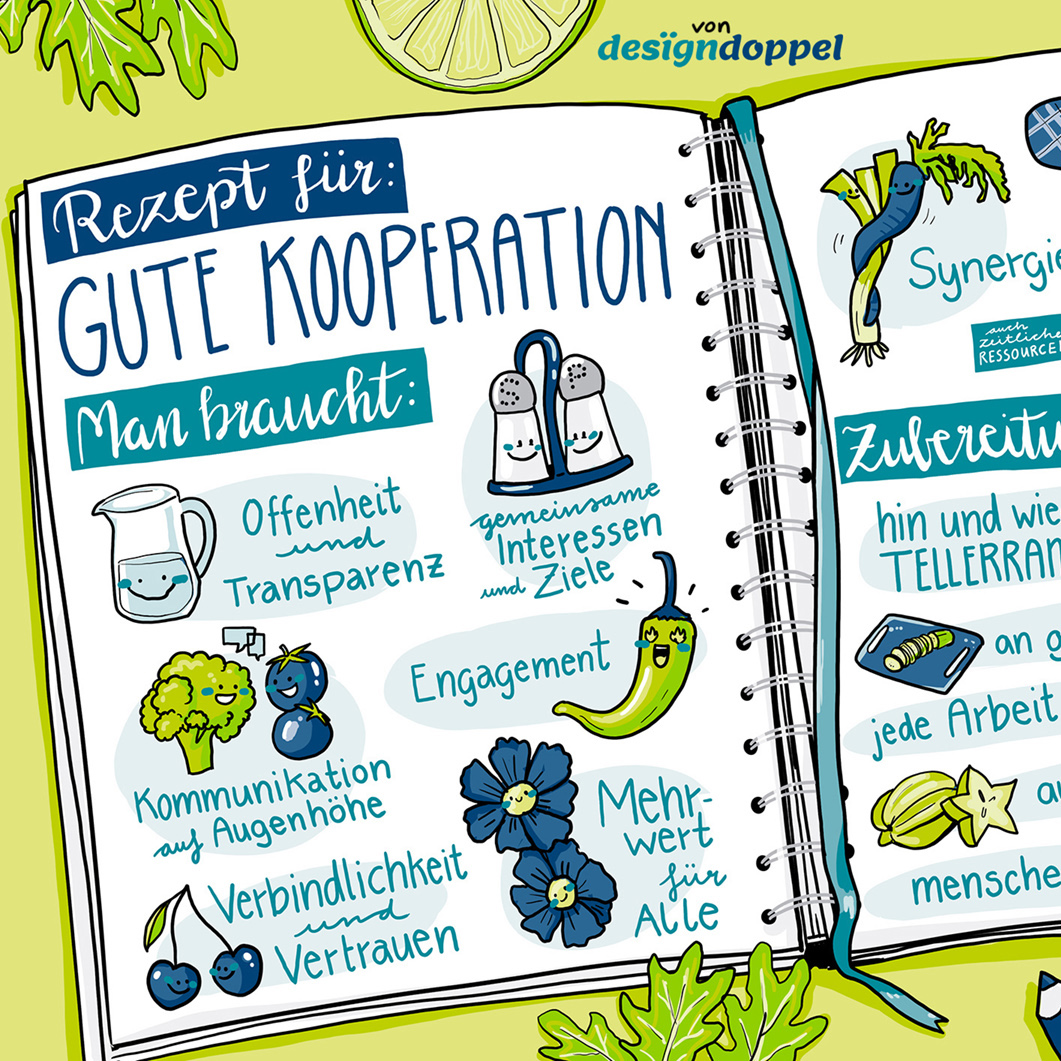 von
designdoppel
Rezept für:
GUTE KOOPERATION
Man braucht:
S
P
Offenheit
und
Transparenz
gemeinsame
Interessen
und Ziele
Engagement
Kommunikation
auf Augenhöhe
Mehr-
wert
für
Alle
Verbindlichkeit
und
Vertrauen
Synergie
auch
zeitliche
RESSOURCE
Zubereitu
hin und wie
TELLERRAN
an g
jede Arbeit
au
mensche